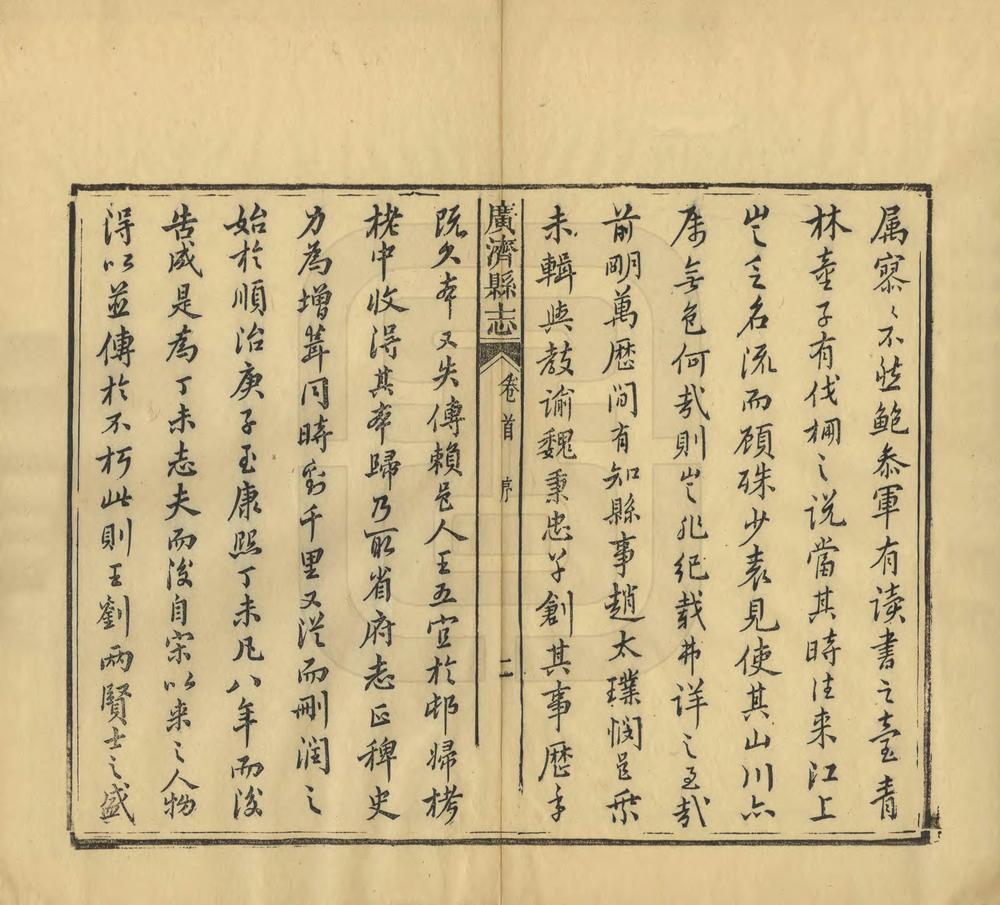 属寥〻不然鮑叅軍有读書之臺青
林童子有伐桐之説當其時往来江上
豈乏名流而顾殊少表見使其山川六
属無色何哉則豈非纪载弗详之至哉
前明萬歴间有知縣事趙太璞悯邑乗
未輯與教谕魏秉忠草創其事歴年
廣濟縣志
卷首
序
二
既久本又失傳賴邑人王五宜於邨婦栲
栳中收淂其本歸乃取省府志正稗史
力為增葺同時劉千里又従而刪润之
始於順治庚子至康熙丁未凡八年而後
告成是為丁未志夫而後自宋以来之人物
淂以並傳於不朽此則王劉两賢士之盛